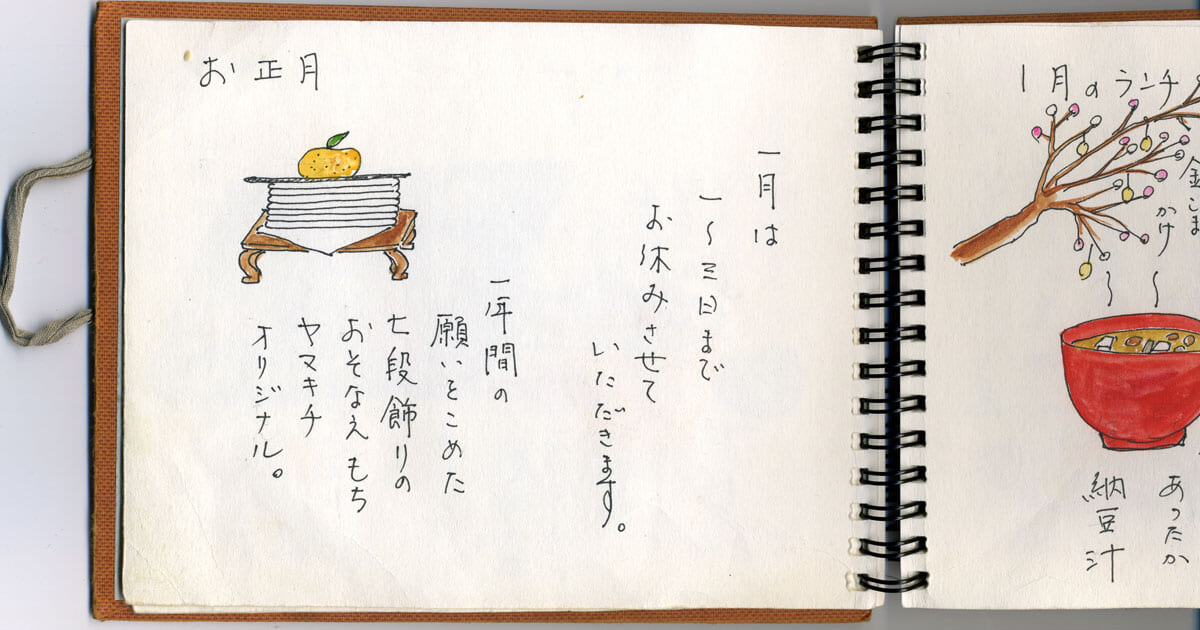 お正月
一月は
一〜三日まで
お休みさせて
いただきます。
一年間の
願いをこめた
七段飾りの
おそなえもち
ヤマキチ
オリジナル。
1月のランチ
金ごま
かけ
あったか
納豆汁